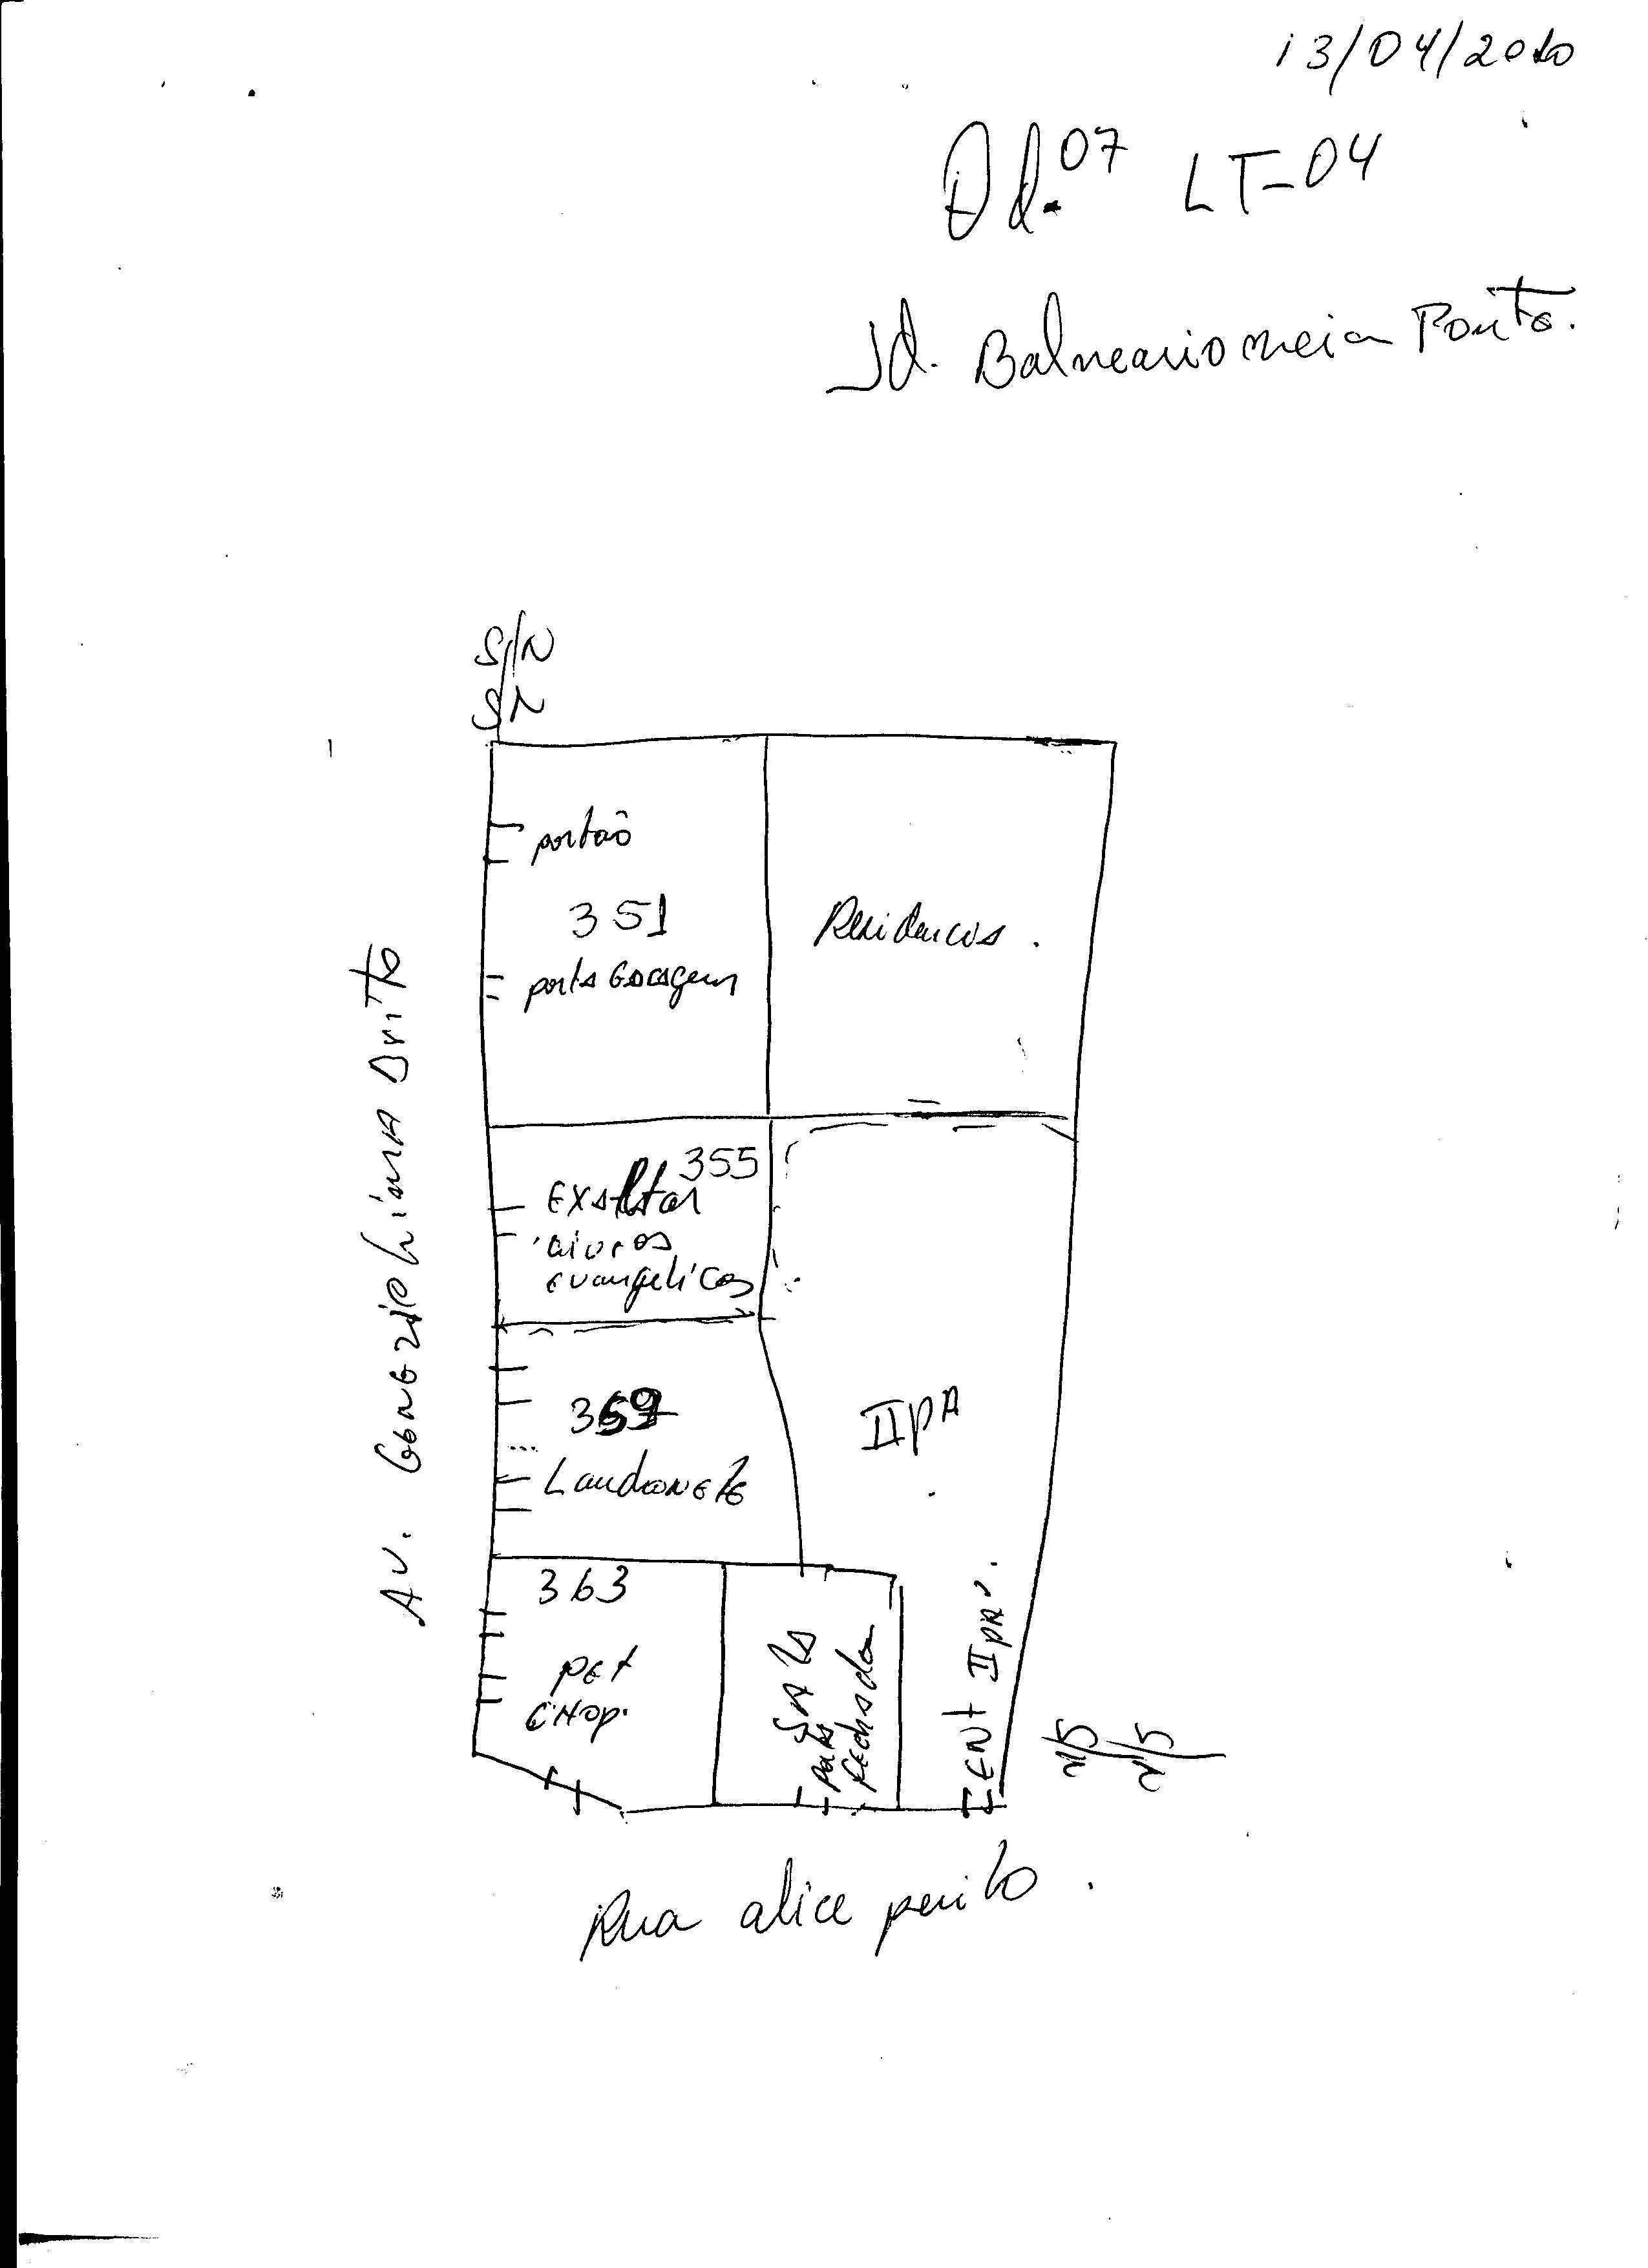 13/04/2010
Qd. 07 LT-04
Jd. Balneario meia Ponte.
S/N
SN
portão
351
porta Garagem
Residencias.
Av. Genezio Lima Brito
355
Exaltar
livros
evangelicos
Lanchonete
IIPA
363
PET
CHOP.
SALA
porta
fechada
ENT IIPA.
Rua alice perilo.